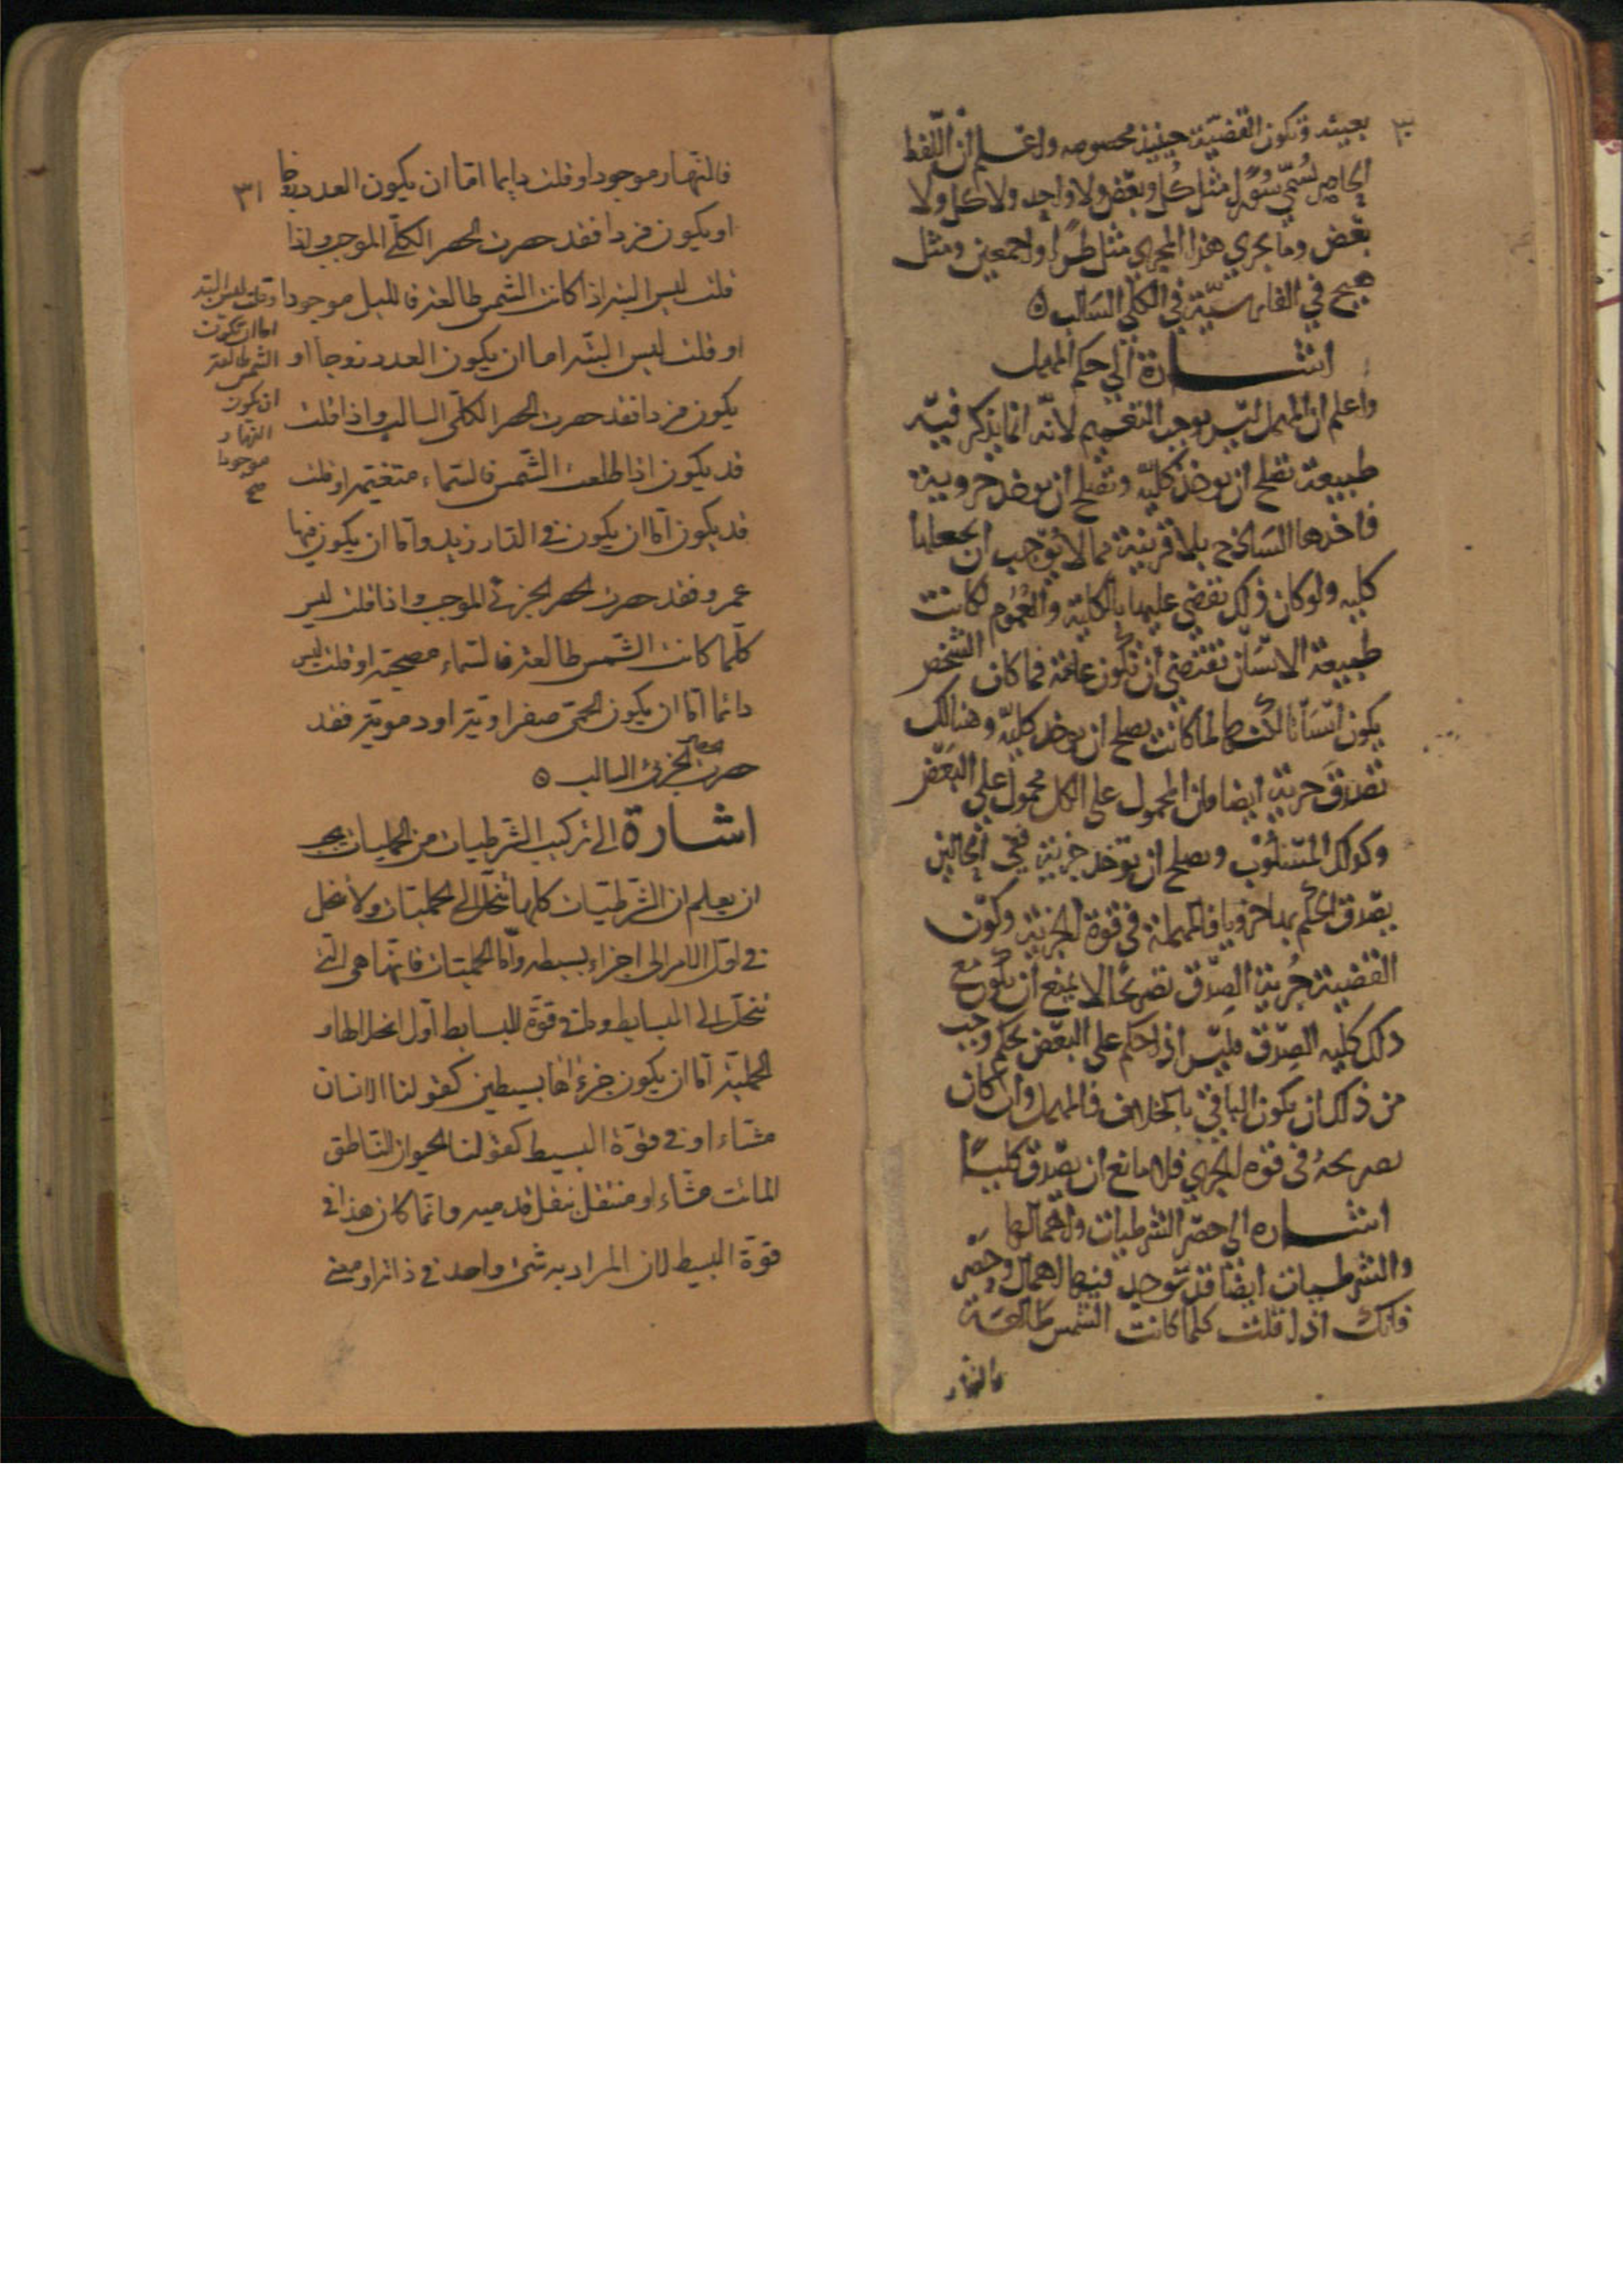 ٣٠
بعينه وتكون القضية حينئذ مخصوصه واعلم ان اللفظ
الحاصر يسمى سورا مثل كل وبعض ولا واحد ولا كل ولا
بعض وما يجري هذا المجرى مثل طرا واجمعين ومثل
هيچ في الفارسية في الكلي السالب ه
اشارة الى حكم المهمل
واعلم ان المهمل ليس يوجب التعميم لانه انما يذكر فيه
طبيعة تصلح ان يوخذ كلية وتصلح ان يوخذ جزوية
فاخذها الساذج بلا قرينة مما لا يوجب ان يجعلها
كليه ولو كان ذلك تقضي عليها بالكلية والعموم لكانت
طبيعة الانسان تقتضي ان تكون عامة فما كان الشخص
يكون انسانا لكنها لما كانت تصلح ان يوخذ كلية وهنالك
تصدق جزية ايضا فان المحمول على الكل محمول على البعض
وكذلك المسلوب وتصلح ان توخذ جزية ففي الحالين
يصدق الحكم بها جزويا فالمهملة في قوة الجزية وكون
القضية جزية الصدق تصريحا لا يمنع ان يكون مع
ذلك كليه الصدق فليس اذا حكم على البعض بحكم وجب
من ذلك ان يكون الباقي بالخلاف فالمهمل وان كان
بصريحه في قوة الجزي فلا مانع ان يصدق كليا
اشاره الى حصر الشرطيات واهمالها
والشرطيات ايضا قد توجد فيها اهمال وحصر
فانك اذا قلت كلما كانت الشمس طالعة
فالنهار
٣١
فالنهار موجود او قلت دايما اما ان يكون العدد زوجا
او يكون فردا فقد حصرت الحصر الكلي الموجب واذا
قلت ليس البتة اذا كانت الشمس طالعة فالليل موجودا
او قلت ليس البتة اما ان يكون العدد زوجا او
يكون فردا فقد حصرت الحصر الكلي السالب واذا قلت
قد يكون اذا طلعت الشمس فالسماء متغيمة او قلت
قد يكون اما ان يكون في الدار زيد واما ان يكون فيها
عمرو فقد حصرت الحصر الجزئي الموجب واذا قلت ليس
كلما كانت الشمس طالعة فالسماء مصحية او قلت ليس
دائما اما ان يكون الحمى صفراوية او دموية فقد
حصرت الجزئى السالب ه
اشارة الى تركيب الشرطيات من الحمليات يجب
ان يعلم ان الشرطيات كلها تنحل الى الحمليات ولا تنحل
في اول الامر الى اجزاء بسيطه واما الحمليات فانها هي التي
تنحل الى البسايط وما في قوة البسايط اول انحلالها و
الحملية اما ان يكون جزءاها بسيطين كقولنا الانسان
مشاء او في قوة البسيط كقولنا الحيوان الناطق
المائت مشاء او منتقل بنقل قدميه وانما كان هذا في
قوة البسيط لان المراد به شئ واحد في ذاته او معنى
وقلت ليس البتة
اما ان تكون
الشمس طالعة
ان يكون
النهار
موجودا
صح